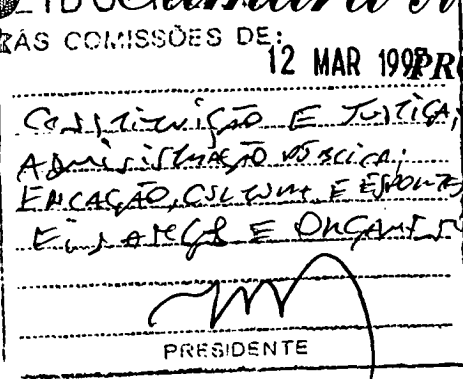 ÀS COMISSÕES DE:
12 MAR 1997
Constituição E Justiça;
Administração Pública;
Educação, Cultura E Esportes
Finanças E Orçamento
PRESIDENTE